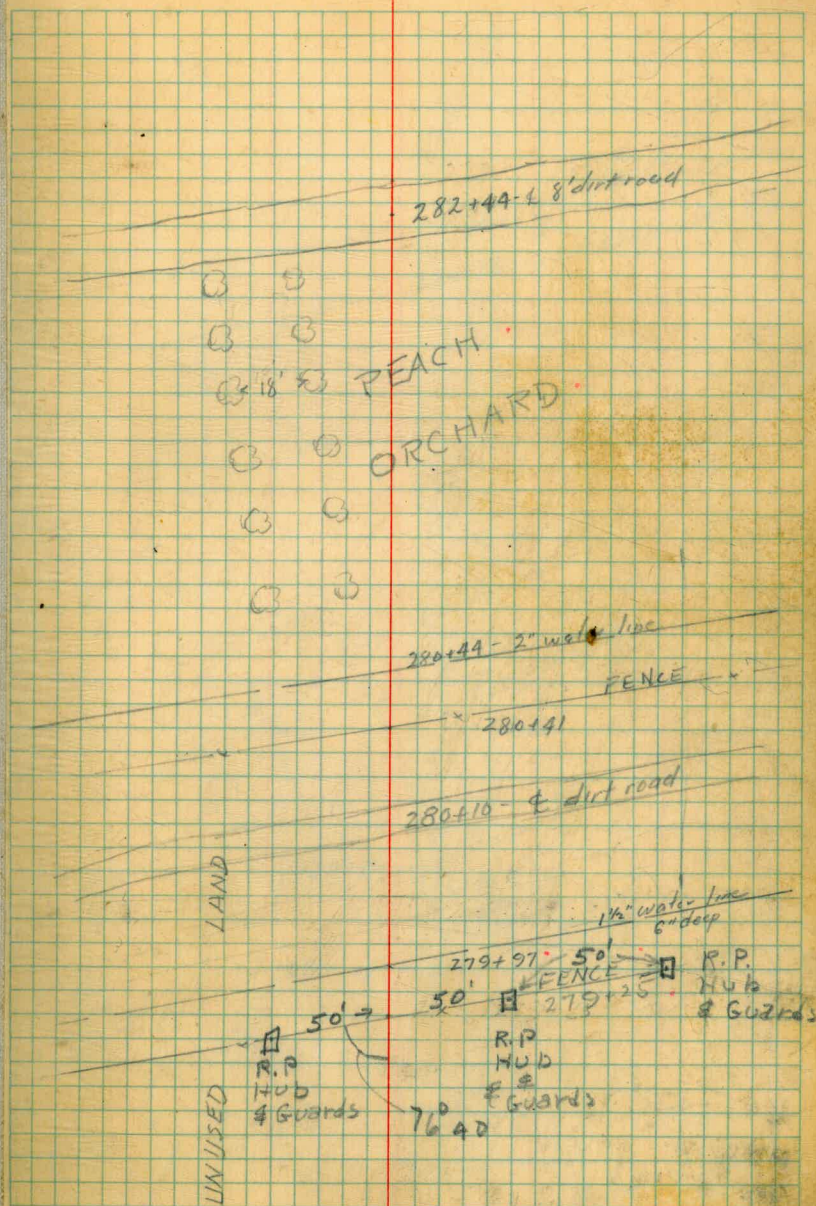 282+44-℄ 8' dirt road
18'
PEACH
ORCHARD
280+44 - 2" water line
FENCE
280+41
280+10 - ℄ dirt road
LAND
1½" water line
6" deep
279+97
50'
FENCE
279+25
R.P.
Hub
& Guards
50'
50'
R.P
HUB
& Guards
R.P
HUB
& Guards
76° 40
UNUSED